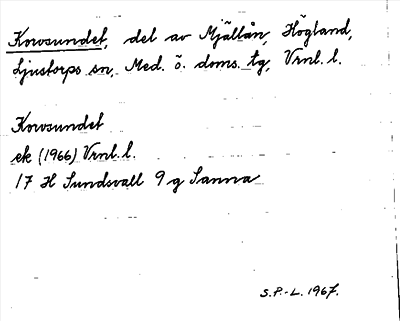 Korvsundet, del av Mjällån, Högland,
Ljustorps sn, Med. ö. doms. tg, Vrnl. l.
Korvsundet
ek (1966) Vrnl. l.
17 H Sundsvall 9 g Sanna
S.P.-L. 1967.